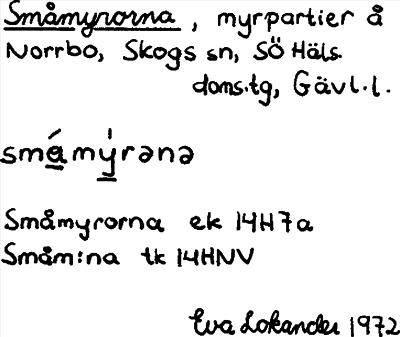 Småmyrorna, myrpartier å
Norrbo, Skogs sn, SÖ Häls.
doms.tg, Gävl.l.
småmýrənə
Småmyrorna ek 14H7a
Småm:na tk 14HNV
Eva Lokander 1972